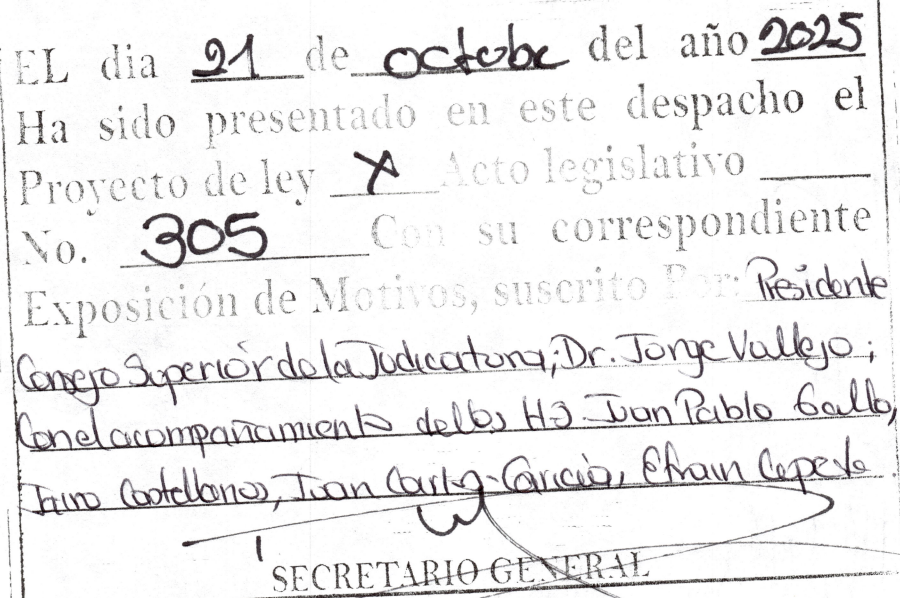 EL dia 21 de octobe del año 2025
Ha sido presentado en este despacho el
Proyecto de ley X Acto legislativo
No. 305 Con su correspondiente
Exposición de Motivos, suscrito Por: Presidente
Consejo Superior de la Judicatura; Dr. Jorge Vallejo;
Con el acompañamiento de los HS Juan Pablo Gallo,
Castellanos, Juan Carlos García, Efrain Cepeda
SECRETARIO GENERAL